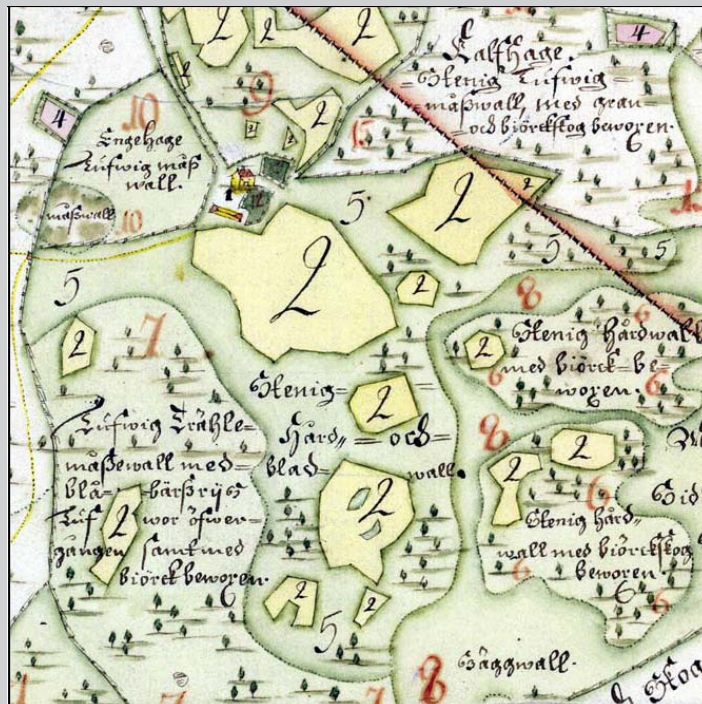 Kalfhage.
Stenig Tufwig
måßwall, med gran
och biörckskog bewoxen.
6
4
4
2
2
2
2
2
2
9
10
10
15
Engehage
Tufwig måß
wall.
måßwall
1
12
5
2
2
2
5
5
5
8
6
6
6
2
Stenig hårdwall
med biörck be
woxen.
7
2
Stenig
Hård och
blad wall.
2
2
Tufwig Trähle
måßewall med
blåbärßrijß
Tuf wor öfwer
gången samt med
biörck bewoxen.
6
2
2
2
5
8
2
2
6
Stenig hård
wall med biörckskog
bewoxen.
6
6
6
Sid
Säggwall.
8
7
7
Skog